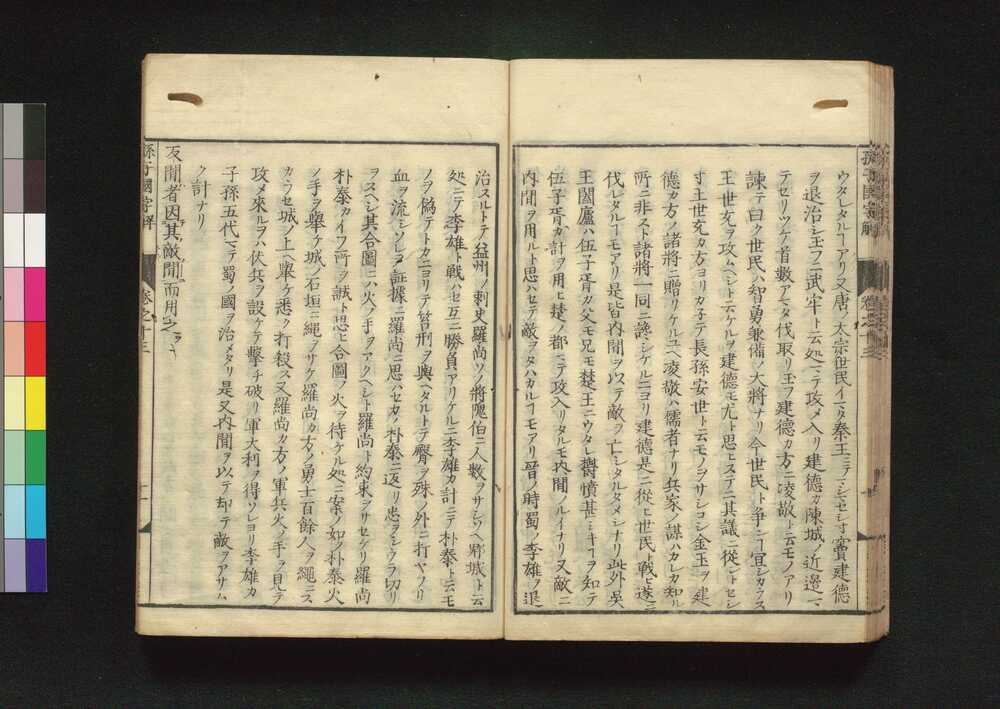 ウタレタルヿアリ又唐ノ太宗世民イマタ秦王ニテマシマセシ寸竇建德
ヲ退治シ玉フニ武牢ト云処マテ攻メ入リ建德カ陳城ノ近邊マ
テセリツケ首數アマタ伐取リ玉フ建德カ方ニ凌敬ト云モノアリ
諫テ曰ク世民ハ智勇兼備ノ大將ナリ今世民ト爭フヿ宜シカラス
王世充ヲ攻ムヘシト云ケルヲ建德モ尤ト思ヒステニ其議ニ從ントセシ
寸王世充カ方ヨリカ子テ長孫安世ト云モノヲサシコシ金玉ヲ建
德カ方ノ諸將ニ贈リケルユヘ凌敬ハ儒者ナリ兵家ノ謀ハカレカ知ル
所ニ非スト諸將一同ニ讒シケルニヨリ建德是ニ從ヒ世民ト戰ヒ遂ニ
伐レタルヿモアリ是皆内間ヲ以テ敵ヲ亡シタルタメシナリ此外吳
王闔廬ハ伍子胥カ父モ兄モ楚王ニウタレ欝憤甚シキヿヲ知テ
伍子胥カ計ヲ用ヒ楚ノ都マテ攻入リタルモ内間ノルイナリ又敵ニ
内間ヲ用ルト思ハセテ敵ヲタハカルヿモアリ晉ノ時蜀ノ李雄ヲ退
治スルトテ益州ノ刺史羅尚ソノ將隗伯ニ人數ヲサシソヘ郫城ト云
処ニテ李雄ト戰ハセ互ニ勝負アリケルニ李雄カ計ニテ朴泰ト云モ
ノヲ僞テトカニヨリテ笞刑ヲ與ヘタルトテ臀ヲ殊ノ外ニ打ヤフリ
血ヲ流シソレヲ証據ニ羅尚ニ思ハセカノ朴泰ニ返リ忠ヲシウラ切リ
ヲスヘシ其合圖ニハ火ノ手ヲアクヘシト羅尚ト約束ヲサセケリ羅尚
朴泰カイフ所ヲ誠ト思ヒ合圖ノ火ヲ待ケル処ニ案ノ如ク朴泰火
ノ手ヲ擧ケ城ノ石垣ニ繩ヲサケ羅尚カ方ノ勇士百餘人ヲ繩ニス
カラセ城ノ上ヘ擧ケ悉ク打殺ス又羅尚カ方ノ軍兵火ノ手ヲ見テ
攻メ來ルヲハ伏兵ヲ設ケテ擊チ破リ軍大利ヲ得ソレヨリ李雄カ
子孫五代マテ蜀ノ國ヲ治メタリ是又内間ヲ以テ却テ敵ヲアサム
ク計ナリ
反間者因其敵間而用之
孫子國字解 卷之十三